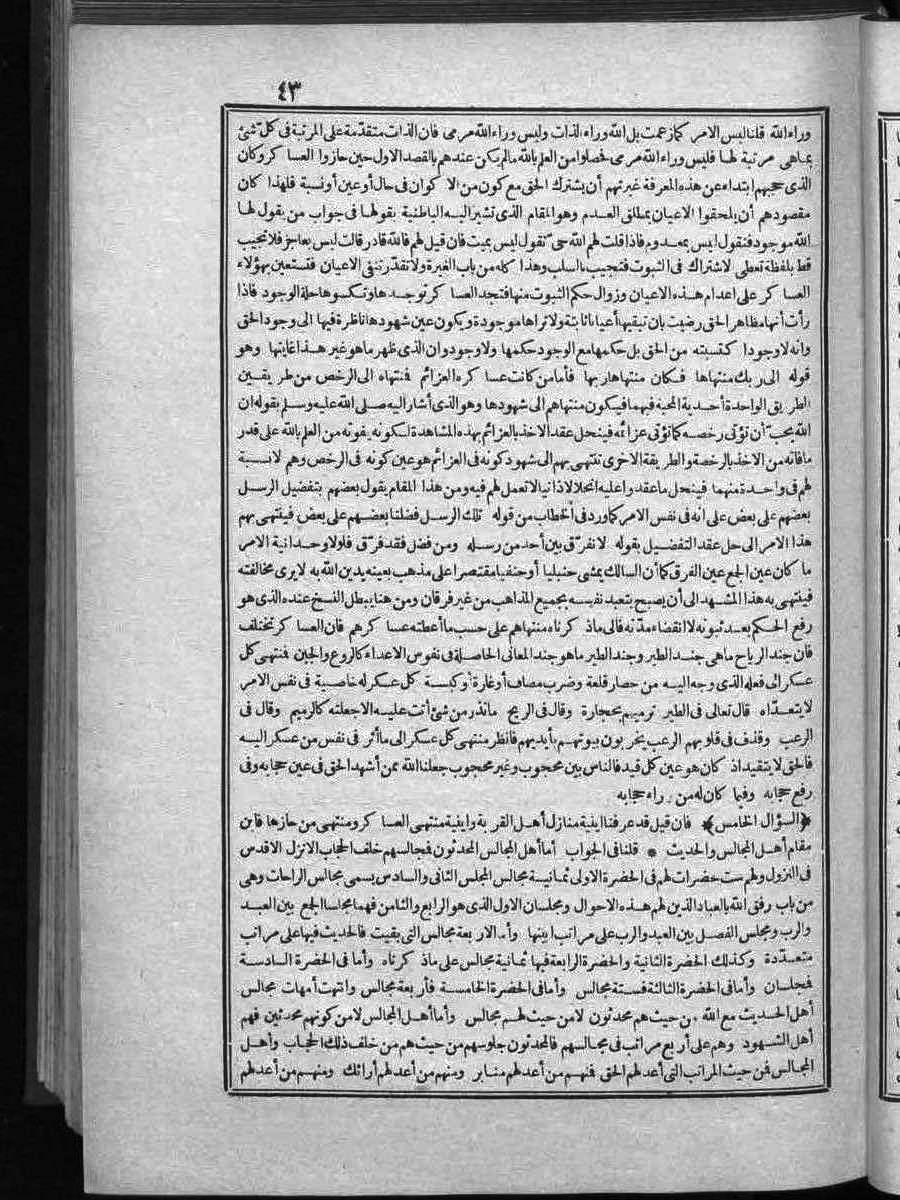 ٤٣
وراء الله قلنا ليس الامر كما زعمت بل الله وراء الذات وليس وراء الله مرمى فان الذات متقدّمة على المرتبة فى كل شئ
بما هى مرتبة لها فليس وراء الله مرمى فحصلوا من العلم بالله ما لم يكن عندهم بالقصد الاول حين حازوا العسا كر وكان
الذى حجبهم ابتداء عن هذه المعرفة غيرتهم أن يشترك الحق مع كون من الا كوان فى حال أو عين أو نسبة فلهذا كان
مقصودهم أن يلحقوا الاعيان بمطلق العدم وهو المقام الذى تشير اليه الباطنية بقولها فى جواب من يقول لها
الله موجود فتقول ليس بمعدوم فاذا قلت لهم الله حىّ تقول ليس بميت فان قيل لهم فالله قادر قالت ليس بعاجز فلا تجيب
قط بلفظة تعطى الاشتراك فى الثبوت فتجيب بالسلب وهذا كله من باب الغيرة ولا تقدر تنفى الاعيان فتستعين بهؤلاء
العسا كر على اعدام هذه الاعيان وزوال حكم الثبوت منها فتجد العسا كر توجدها وتكسوها حلة الوجود فاذا
رأت أنها مظاهر الحق رضيت بان تبقيها أعيانا ثابتة ولا تراها موجودة ويكون عين شهودها ناظرة فيها الى وجود الحق
وانه لا وجودا كتسبته من الحق بل حكمها مع الوجود حكمها ولا وجود وان الذى ظهر ما هو غير هذا غايتها وهو
قوله الى ربك منتهاها فكان منتهاها ربها فأما من كانت عسا كره العزائم فنتهاه الى الرخص من طريقين
الطريق الواحدة أحدية المحبة فيهما فيكون منتهاهم الى شهودها وهو الذى أشار اليه صلى الله عليه وسلم بقوله ان
الله يحبّ أن تؤتى رخصه كما تؤتى عزائمه فينحل عقد الاخذ بالعزائم بهذه المشاهدة لكونه يفوته من العلم بالله على قدر
ما فاته من الاخذ بالرخصة والطريقة الاخرى تنتهى بهم الى شهود كونه فى العزائم هو عين كونه فى الرخص وهم لا نسبة
لهم فى واحدة منهما فينحل ما عقدوا عليه انحلالا ذاتيا لا تعمل لهم فيه ومن هذا المقام يقول بعضهم بتفضيل الرسل
بعضهم على بعض على انه فى نفس الامر كما ورد فى الخطاب من قوله تلك الرسل فضلنا بعضهم على بعض فينتهى بهم
هذا الامر الى حل عقد التفضيل بقوله لا نفرّق بين أحد من رسله ومن فضل فقد فرّق فلولا وحدانية الامر
ما كان عين الجمع عين الفرق كما أن السالك يمشى حنبليا أو حنفيا مقتصرا على مذهب بعينه يدين الله به لا يرى مخالفته
فينتهى به هذا المشهد الى أن يصبح يتعبد نفسه بجميع المذاهب من غير فرقان ومن هنا يبطل النسخ عنده الذى هو
رفع الحكم بعد ثبوته لا انقضاء مدّته فالى ماذ كرناه منتهاهم على حسب ما أعطته عسا كرهم فان العسا كر تختلف
فان جند الرياح ما هى جند الطير وجند الطير ما هو جند المعانى الحاصلة فى نفوس الاعداء كالروع والجبن فنتهى كل
عسكر الى فعله الذى وجه اليه من حصار قلعة وضرب مصاف أو غارة أو كبسة كل عسكر له خاصية فى نفس الامر
لا يتعدّاه قال تعالى فى الطير ترميهم بحجارة وقال فى الريح ما تذر من شئ أتت عليه الا جعلته كالرميم وقال فى
الرعب وقذف فى قلوبهم الرعب يخربون بيوتهم بأيديهم فانظر منتهى كل عسكر الى ما أثر فى نفس من عسكر اليه
فالحق لا يتقيد اذ كان هو عين كل قيد فالناس بين محجوب وغير محجوب جعلنا الله ممن أشهد الحق فى عين حجابه وفى
رفع حجابه وفيما كان له من وراء حجابه
﴿السؤال الخامس﴾ فان قيل قد عرفنا اينية منازل أهل القربة واينية منتهى العسا كر ومنتهى من حازها فاين
مقام أهل المجالس والحديث * قلنا فى الجواب أما أهل المجالس المحدثون فمجالسهم خلف الحجاب الانزل الاقدس
فى النزول ولهم ست حضرات لهم فى الحضرة الاولى ثمانية مجالس المجلس الثانى والسادس يسمى مجالس الراحات وهى
من باب رفق الله بالعباد الذين لهم هذه الاحوال ومجلسان الاول الذى هو الرابع والثامن فهما مجلسا الجمع بين العبد
والرب ومجلس الفصل بين العبد والرب على مراتب ابينها وأما الاربعة مجالس التى بقيت فالحديث فيها على مراتب
متعدّدة وكذلك الحضرة الثانية والحضرة الرابعة فيها ثمانية مجالس على ماذ كرناه وأما فى الحضرة السادسة
فمجلسان وأما فى الحضرة الثالثة فستة مجالس وأما فى الحضرة الخامسة فأربعة مجالس وانتهت أمهات مجالس
أهل الحديث مع الله من حيث هم محدثون لا من حيث لهم مجالس وأما أهل المجالس لا من كونهم محدثين فهم
أهل الشهود وهم على أربع مراتب فى مجالسهم فالمحدثون جلوسهم من حيث هم من خلف ذلك الحجاب وأهل
المجالس فمن حيث المراتب التى أعد لهم الحق فنهم من أعد لهم منابر ومنهم من أعد لهم أرائك ومنهم من أعد لهم